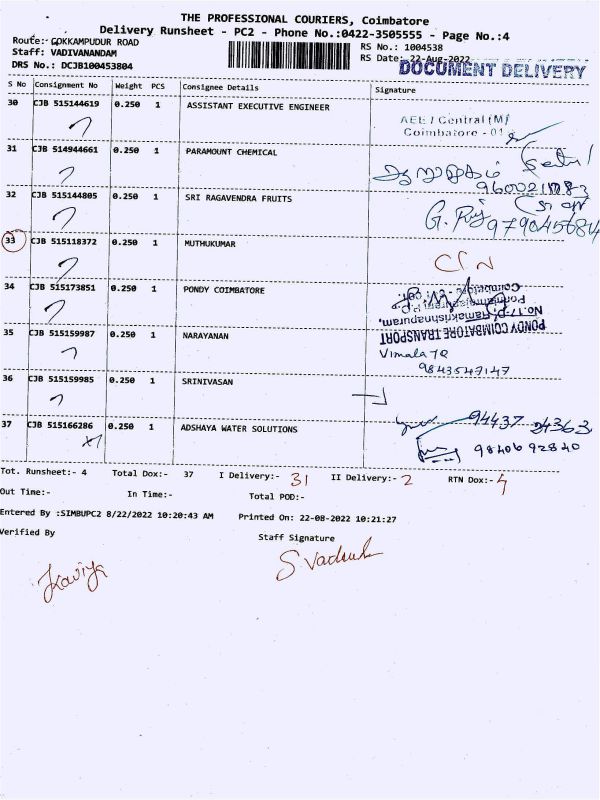 THE PROFESSIONAL COURIERS, Coimbatore
Delivery Runsheet - PC2 - Phone No.:0422-3505555 - Page No.:4
Route:- GOKKAMPUDUR ROAD
RS No.: 1004538
Staff: VADIVANANDAM
RS Date: 22-Aug-2022
DRS No.: DCJB100453804
DOCUMENT DELIVERY
S No Consignment No Weight PCS Consignee Details Signature
30 CJB 515144619 0.250 1 ASSISTANT EXECUTIVE ENGINEER
AEE / Central (M)
Coimbatore - 01
31 CJB 514944661 0.250 1 PARAMOUNT CHEMICAL
32 CJB 515144805 0.250 1 SRI RAGAVENDRA FRUITS
979045684
33 CJB 515118372 0.250 1 MUTHUKUMAR
34 CJB 515173851 0.250 1 PONDY COIMBATORE
PONDY COIMBATORE TRANSPORT
No.17-p, Ramakrishnapuram,
35 CJB 515159987 0.250 1 NARAYANAN
Vimala
9843547147
36 CJB 515159985 0.250 1 SRINIVASAN
37 CJB 515166286 0.250 1 ADSHAYA WATER SOLUTIONS
94437 24363
98406 92840
Tot. Runsheet:- 4 Total Dox:- 37 I Delivery:- 31 II Delivery:- 2 RTN Dox:- 4
Out Time:- In Time:- Total POD:-
Entered By :SIMBUPC2 8/22/2022 10:20:43 AM Printed On: 22-08-2022 10:21:27
Verified By Staff Signature
Kaviya